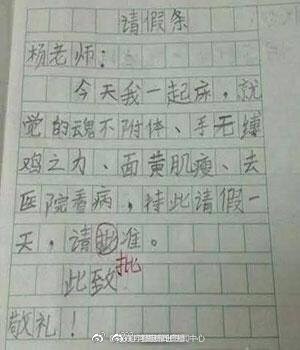 请假条
杨老师：
今天我一起床，就
觉的魂不附体、手无缚
鸡之力、面黄肌瘦、去
医院看病，持此请假一
天，请此准。
批
此致
敬礼！